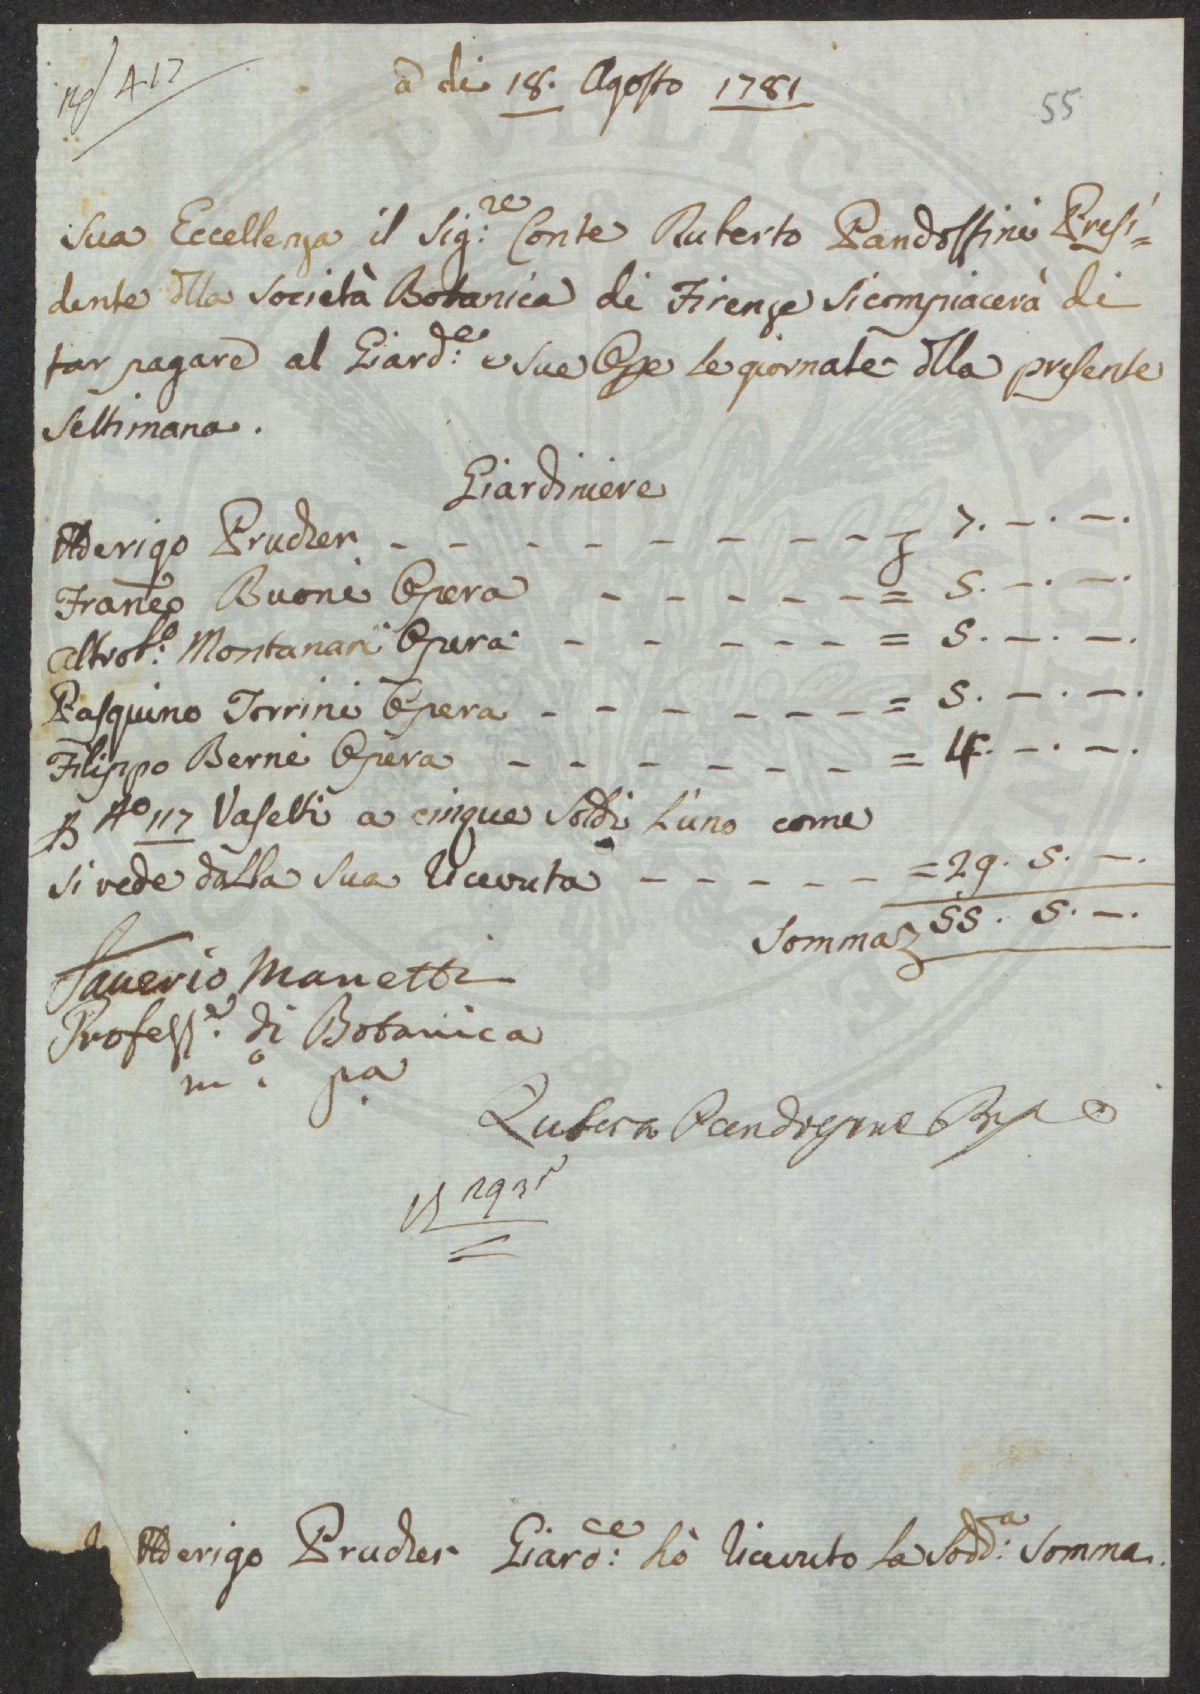 417
à di 18. Agosto 1781
55
Sua Eccellenza il Sig:re Conte Ruberto Pandolfini Presi=
dente dlla Società Botanica di Firenze si compiacerà di
far pagare al Giard:e e sue Ope le giornate dlla presente
Settimana.
Giardiniere
Aderigo Prucher - - - - - - - - - 7. —. —.
Franco Buoni Opera - - - - - = 5. —. —.
Altrob:o Montanari Opera - - - - - = 5. —. —.
Pasquino Torrini Opera - - - - - - - = 5. —. —.
Filippo Berni Opera - - - - - - - = 4. —. —.
P No 117 Vaselli a cinque Soldi l'uno come
si vede dalla sua ricevuta - - - - - = 29. 5. —.
Somma 55. 5. —.
Saverio Manetti
Profess:e di Botanica
m:o pa
Ruberto Pandolfini
Aderigo Prucher Giard:re hò ricevuto la Sodd:a Somma.